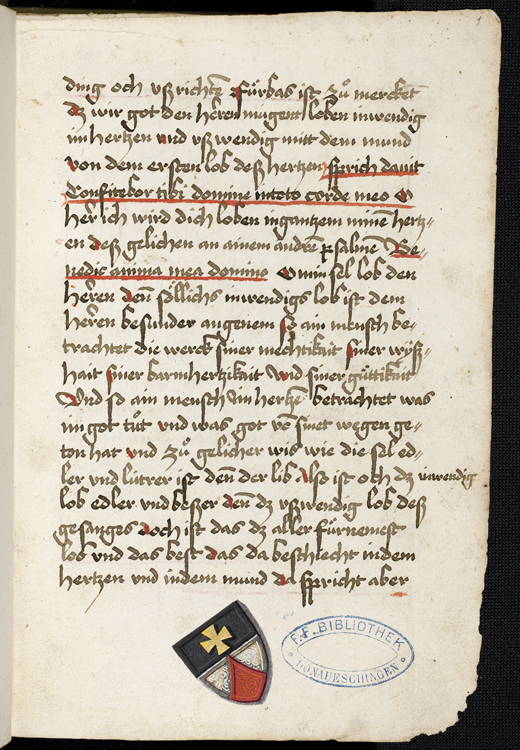 ding och vßrichtē Fürbas ist zů mercket
dz wir got den herren mugent loben inwendig
im hertzen vnd vßwendig mitt dem mund
von dem ersten lob deß hertzen sprich dauit
Confitebor tibi domine in toto corde meo O
her ich wird dich loben in gantzem minē hertz-
en deß gelichen an ainem andrē psalmē Be-
nedic anima mea domino O min sel lob den
herren denn sollichs inwendigs lob ist dem
herren besunder angenem so ain mensch be-
trachtet die werck siner mechtikait siner wyß-
hait siner barmhertzikait vnd siner güttikait
Vnd so ain mensch im hertzē betrachtet was
im got tůt vnd was got vō sinet wegen ge-
ton hat vnd zů gelicher wis wie die sel ed-
ler vnd lutrer ist den der lib also ist och dz inwendig
lob edler vnd besser denn dz vßwendig lob deß
gesanges doch ist das dz aller fürnemest
lob vnd das best das da beschlecht in dem
hertzen vnd in dem mund da spricht aber
F.F. BIBLIOTHEK
DONAUESCHINGEN